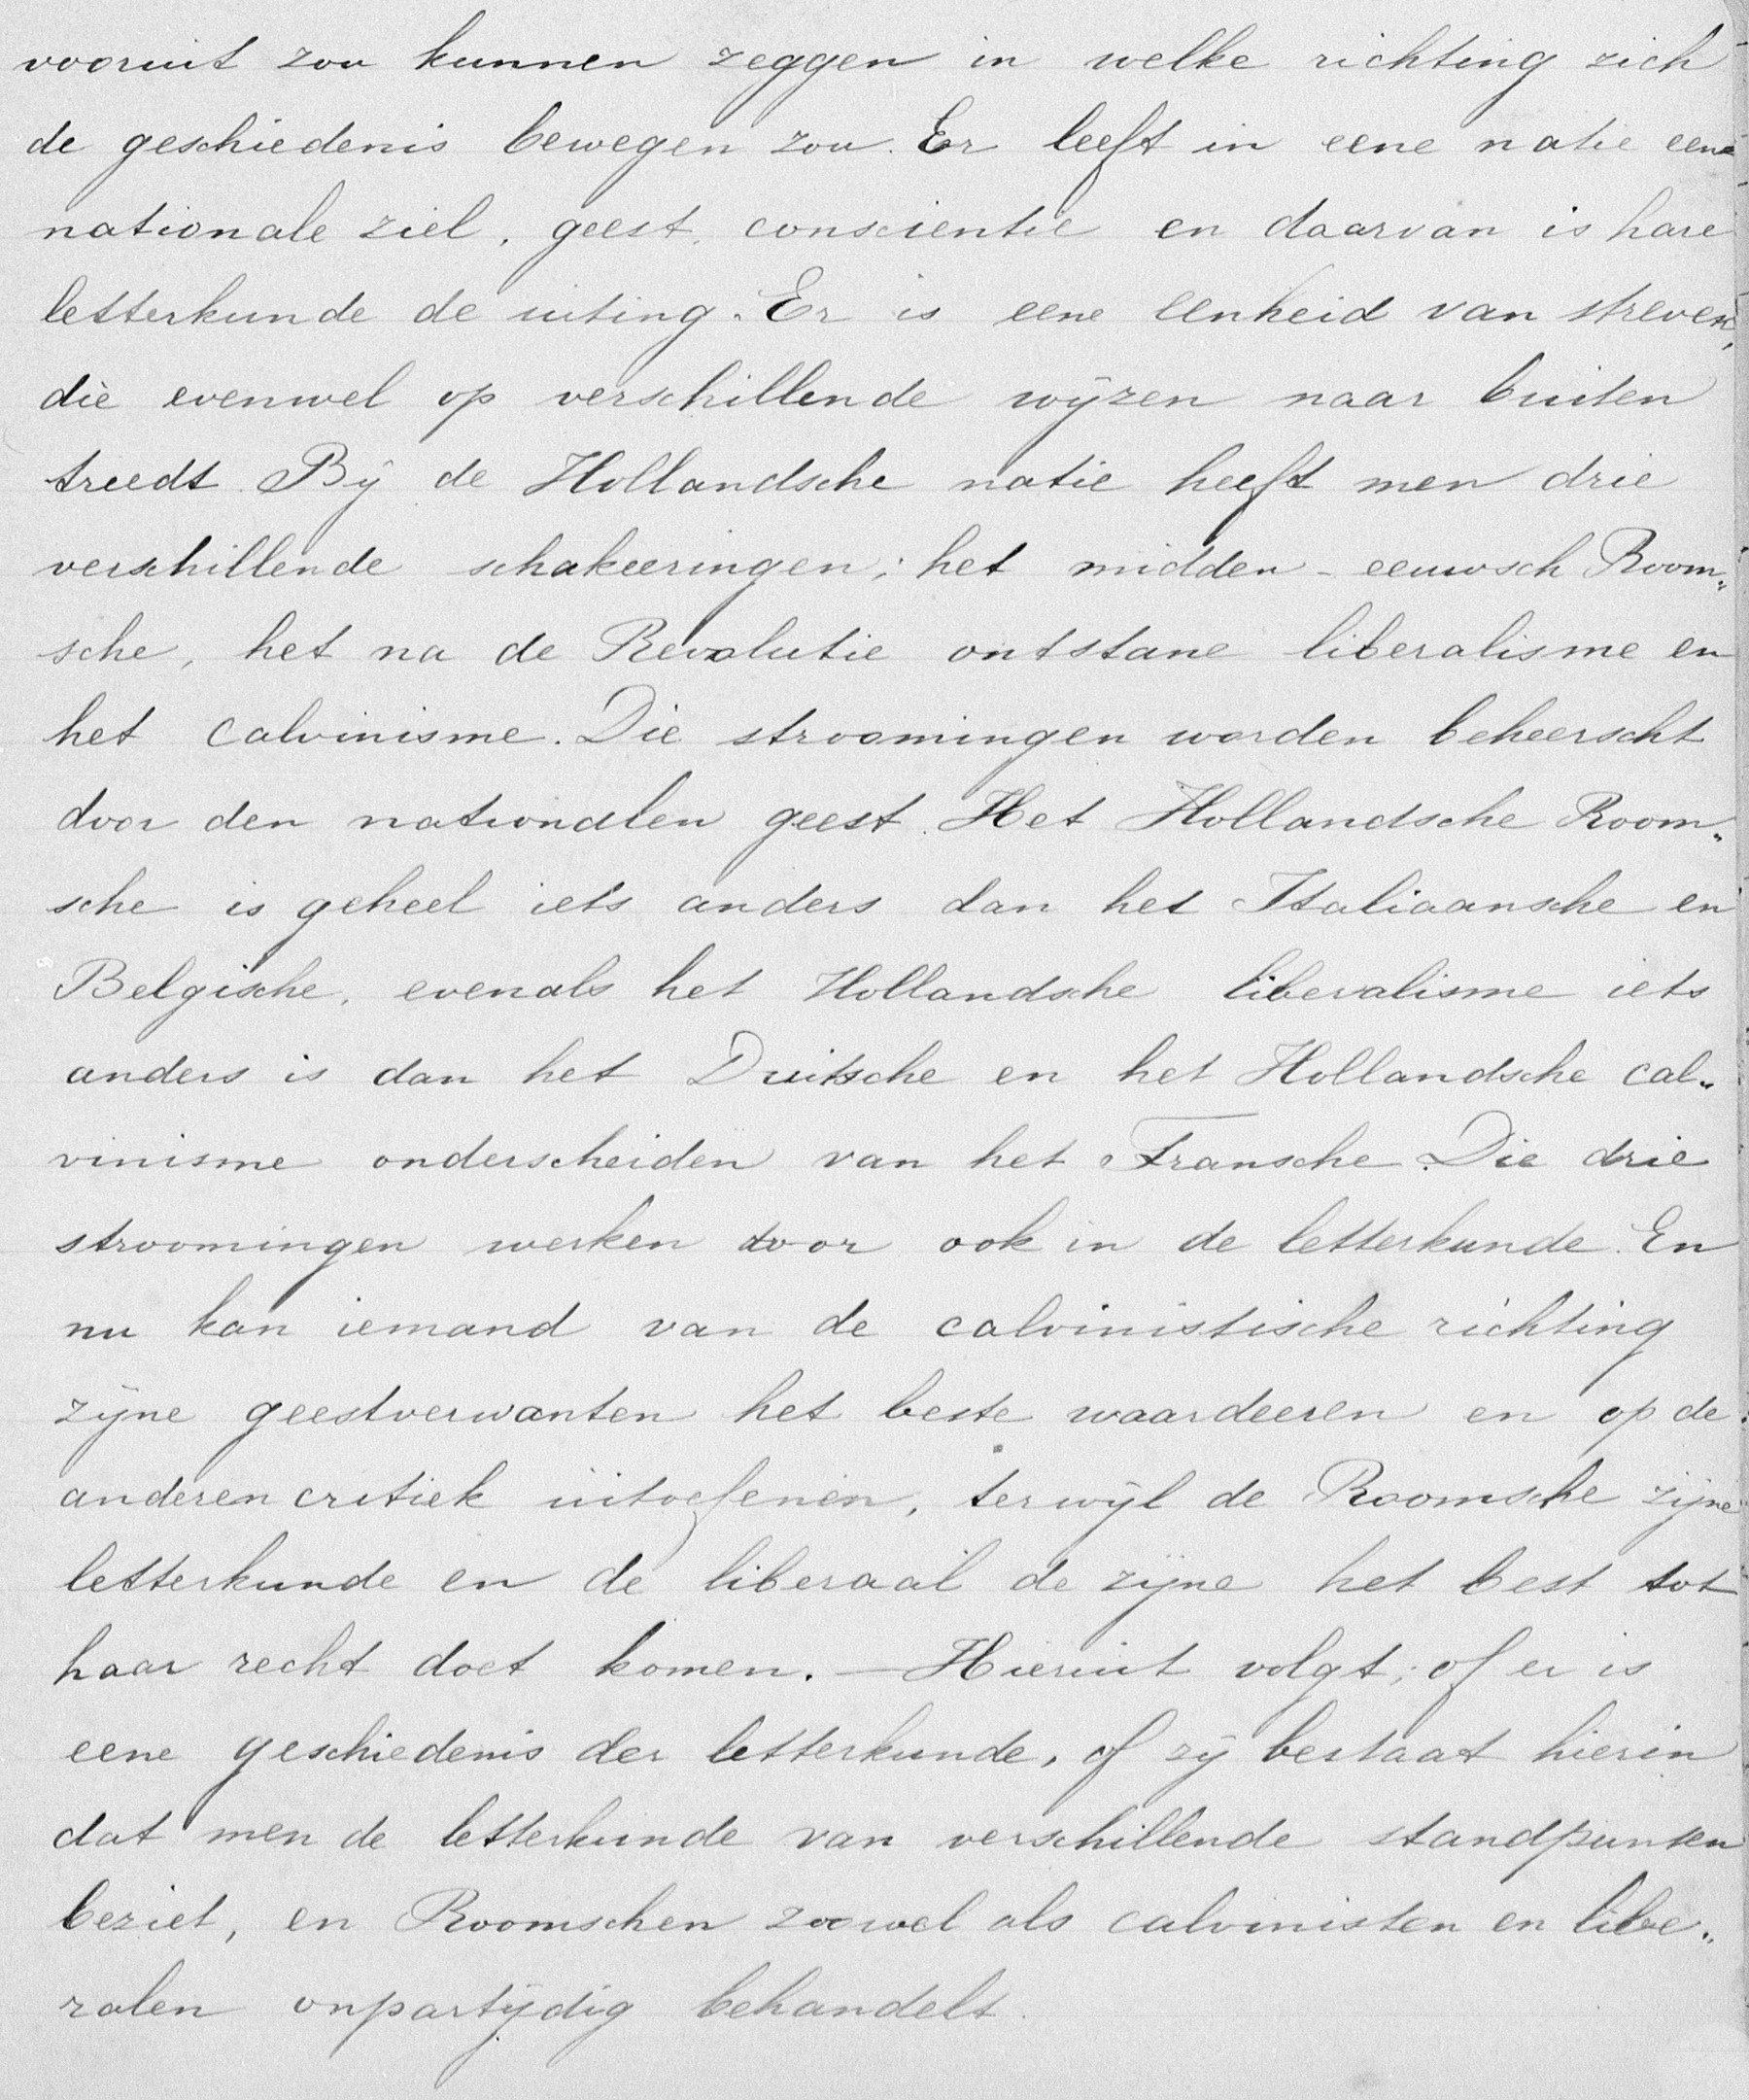 vooruit zou kunnen zeggen in welke richting zich
de geschiedenis bewegen zou. Er leeft in eene natie eene
nationale ziel, geest, conscientie en daarvan is hare
letterkunde de uiting. Er is eene eenheid van streven,
die evenwel op verschillende wijzen naar buiten
treedt. Bij de Hollandsche natie heeft men drie
verschillende schakeeringen; het midden-eeuwsch Room„
sche, het na de Revolutie ontstane liberalisme en
het calvinisme. Die stroomingen worden beheerscht
door den nationalen geest. Het Hollandsche Room„
sche is geheel iets anders dan het Italiaansche en
Belgische, evenals het Hollandsche liberalisme iets
anders is dan het Duitsche en het Hollandsche cal„
vinisme onderscheiden van het Fransche. Die drie
stroomingen werken door ook in de letterkunde. En
nu kan iemand van de calvinistische richting
zijne geestverwanten het beste waardeeren en op de
anderen critiek uitoefenen, terwijl de Roomsche zijne
letterkunde en de liberaal de zijne het best tot
haar recht doet komen. — Hieruit volgt; of er is
eene geschiedenis der letterkunde, of zij bestaat hierin
dat men de letterkunde van verschillende standpunten
beziet, en Roomschen zoowel als calvinisten en libe„
ralen onpartijdig behandelt.